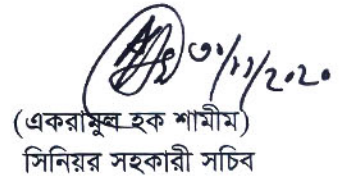 ৩০/১১/২০২০
(একরামুল হক শামীম)
সিনিয়র সহকারী সচিব